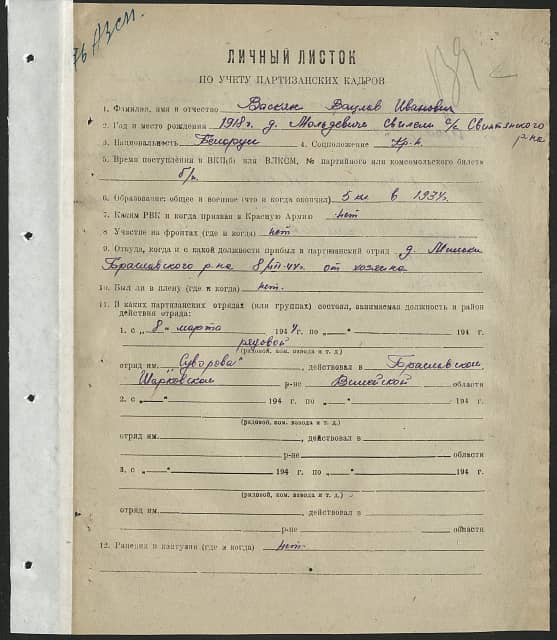 ЛИЧНЫЙ ЛИСТОК
ПО УЧЕТУ ПАРТИЗАНСКИХ КАДРОВ
1. Фамилия, имя и отчество Васкяк Вацлав Иванович
2. Год и место рождения 1918 г. д. Свилели с/с
р-на
3. Национальность Белорус 4. Соцположение Кр-н.
5. Время поступления в ВКП(б) или ВЛКСМ, № партийного или комсомольского билета
б/п.
6. Образование: общее и военное (что и когда окончил) 5 кл в 1934 г.
7. Каким РВК и когда призван в Красную Армию нет
8. Участие на фронтах (где и когда) нет
9. Откуда, когда и с какой должности прибыл в партизанский отряд д.
Браславского р-на 8/III-44 г. от хозяина
10. Был ли в плену (где и когда) нет.
11. В каких партизанских отрядах (или группах) состоял, занимаемая должность и район
действия отряда:
1. с „ 8 “ марта 1944 г. по „ “ 194 г.
рядовой
(рядовой, ком. взвода и т. д.)
отряд им. „Суворова“, действовал в Браславском,
Шарковском р-не Вилейской области
2. с „ “ 194 г. по „ “ 194 г.
(рядовой, ком. взвода и т. д.)
отряд им. , действовал в
р-не области
3. с „ “ 194 г. по „ “ 194 г.
(рядовой, ком. взвода и т. д.)
отряд им. , действовал в
р-не области
12. Ранения и контузии (где и когда) нет